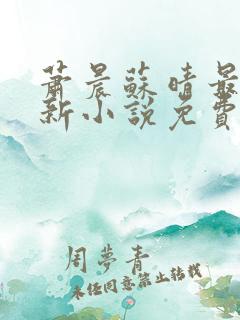 蕭晨蘇晴最
新小說免費
周夢青
未經同意禁止轉載